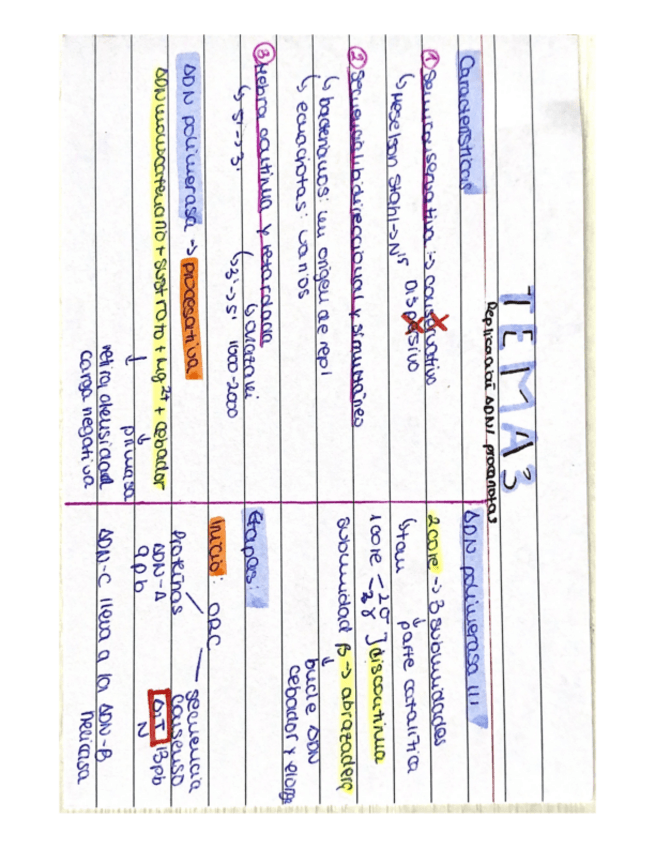 TEMA 3
Replicación ADN/ procariotas
Características
① Semiconservativa -> conservativo
↳ Meselson Stahl -> N15 Dispersivo
② Secuencial bidireccional y simultáneo
↳ bacterianos: un origen de repl
↳ eucariotas: varios
③ Hebra continua y retardada
↳ 5' -> 3' ↳ okazaki
↳ 3' -> 5' 1000-2000
ADN polimerasa -> procesativa
ADN monocatenario + sustrato + Mg2+ + cebador
↓ ↓
primasa
retira densidad
carga negativa
ADN polimerasa III
2 core -> 3 subunidades
↳ tau ↓ parte catalítica
1 core - 2δ
- 2γ ] discontinua
subunidad β -> abrazadera
↓
bucle ADN
cebador y elonga
Etapas:
Inicio: ORC
Proteínas secuencia
ADN-A consenso
9pb A:T 13pb
N
ADN-C lleva a la ADN-B
helicasa